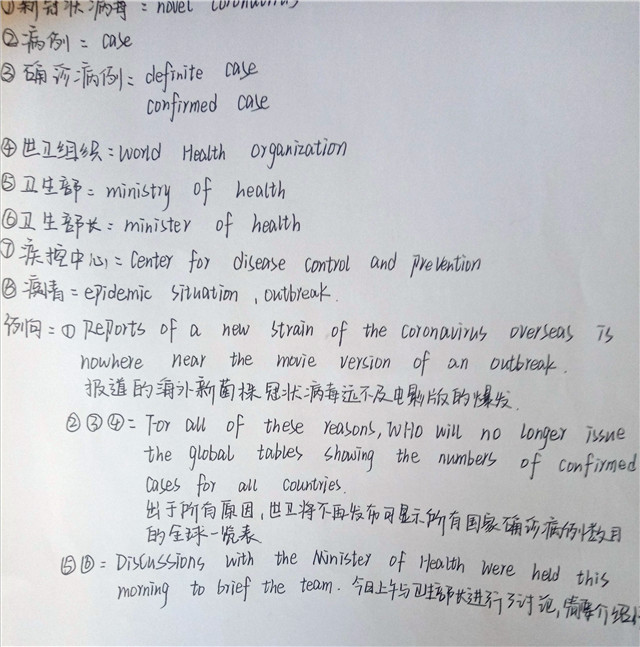 ①新冠状病毒 = novel coronavirus
②病例 = case
③确诊病例 = definite case
confirmed case
④世卫组织 = World Health Organization
⑤卫生部 = ministry of health
⑥卫生部长 = minister of health
⑦疾控中心 = Center for disease control and prevention
⑧病情 = epidemic situation , outbreak.
例句 = ① Reports of a new strain of the coronavirus overseas is
nowhere near the movie version of an outbreak.
报道的海外新菌株冠状病毒远不及电影版的爆发.
②③④ = For all of these reasons, WHO will no longer issue
the global tables showing the numbers of confirmed
cases for all countries.
出于所有原因, 世卫将不再发布可显示所有国家确诊病例数目
的全球一览表
⑤⑥ = Discussions with the Minister of Health were held this
morning to brief the team. 今日上午与卫生部长进行了讨论, 简要介绍